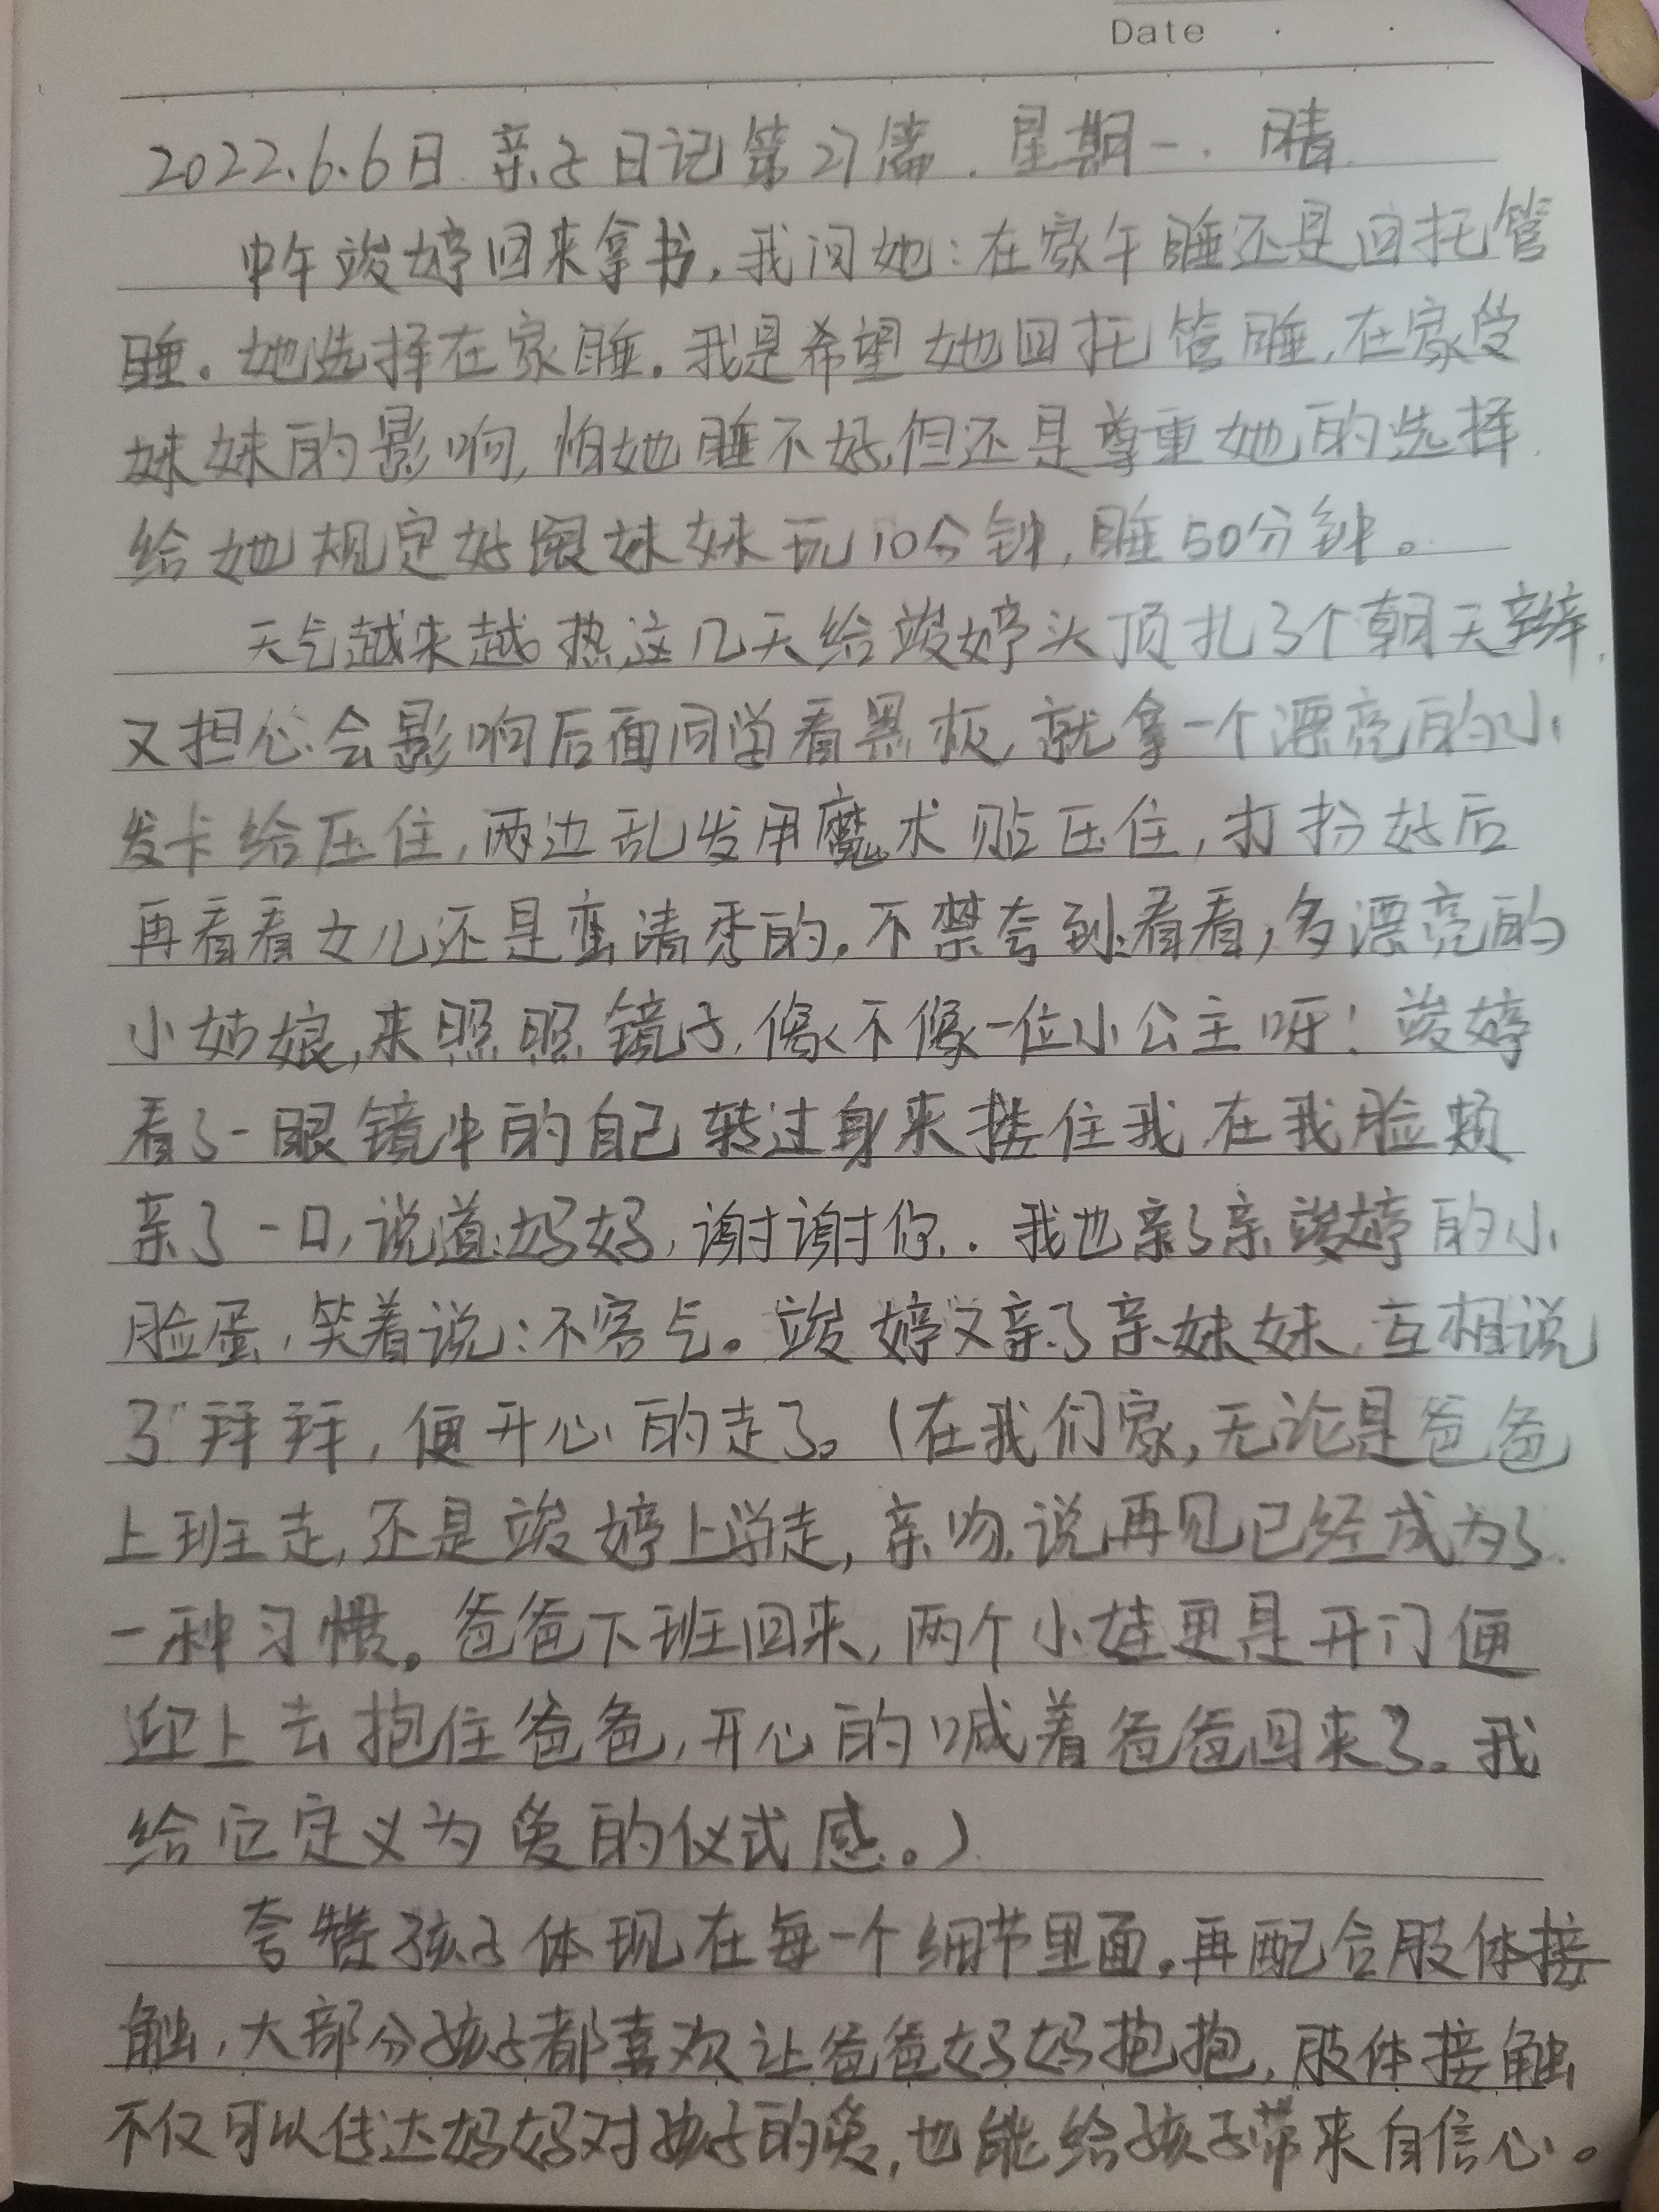 Date
2022.6.6日 亲子日记第27篇. 星期一. 晴.
中午竣婷回来拿书，我问她：在家午睡还是回托管
睡。她选择在家睡。我是希望她回托管睡，在家受
妹妹的影响，怕她睡不好，但还是尊重她的选择.
给她规定好跟妹妹玩10分钟，睡50分钟。
天气越来越热，这几天给竣婷头顶扎了个朝天辫，
又担心会影响后面同学看黑板，就拿一个漂亮的小
发卡给压住，两边乱发用魔术贴压住，打扮好后
再看看女儿还是蛮清秀的。不禁夸到：看看，多漂亮的
小姑娘，来照照镜子，像不像一位小公主呀！竣婷
看了一眼镜中的自己转过身来搂住我在我脸颊
亲了一口，说道：妈妈，谢谢你。. 我也亲了亲竣婷的小
脸蛋，笑着说：不客气。竣婷又亲了亲妹妹，互相说
了“拜拜，便开心的走了。（在我们家，无论是爸爸
上班走，还是竣婷上学走，亲吻，说再见已经成为了
一种习惯。爸爸下班回来，两个小娃更是开门便
迎上去抱住爸爸，开心的喊着爸爸回来了。我
给它定义为爱的仪式感。）
夸赞孩子体现在每一个细节里面。再配合肢体接
触，大部分孩子都喜欢让爸爸妈妈抱抱，肢体接触
不仅可以传达妈妈对孩子的爱，也能给孩子带来自信心。